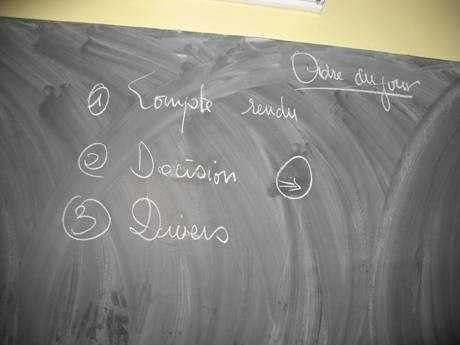 Ordre du jour
① Compte rendu
② Decision ⇒
③ Divers